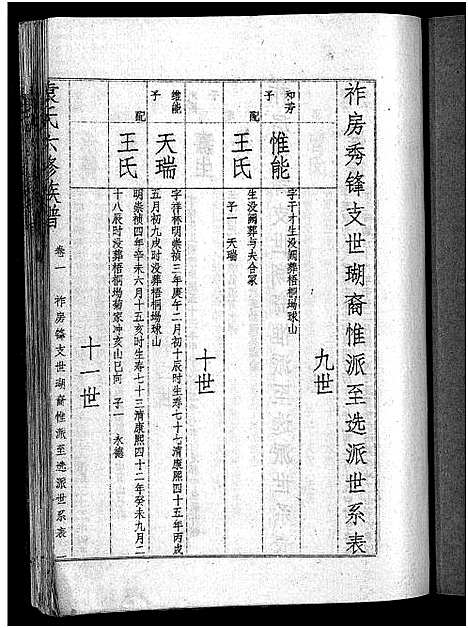 祚房秀锋支世瑚裔惟派至选派世系表
九世
和芳
子
惟能
字干才生没阙葬梧桐场球山
配
王氏
生没阙葬与夫合冢
子一 天瑞
十世
维能
子
天瑞
字祥林明崇祯三年庚午二月初十辰时生寿七十七清康熙四十五年丙戍
五月初九戍时没葬梧桐场球山
配
王氏
明崇祯四年辛未六月十五亥时生寿七十三清康熙四十二年癸未九月二
十八辰时没葬梧桐场菊家冲亥山巳向 子一 永德
十一世
袁氏六修族谱
卷一 祚房锋支世瑚裔惟派至选派世系表 一